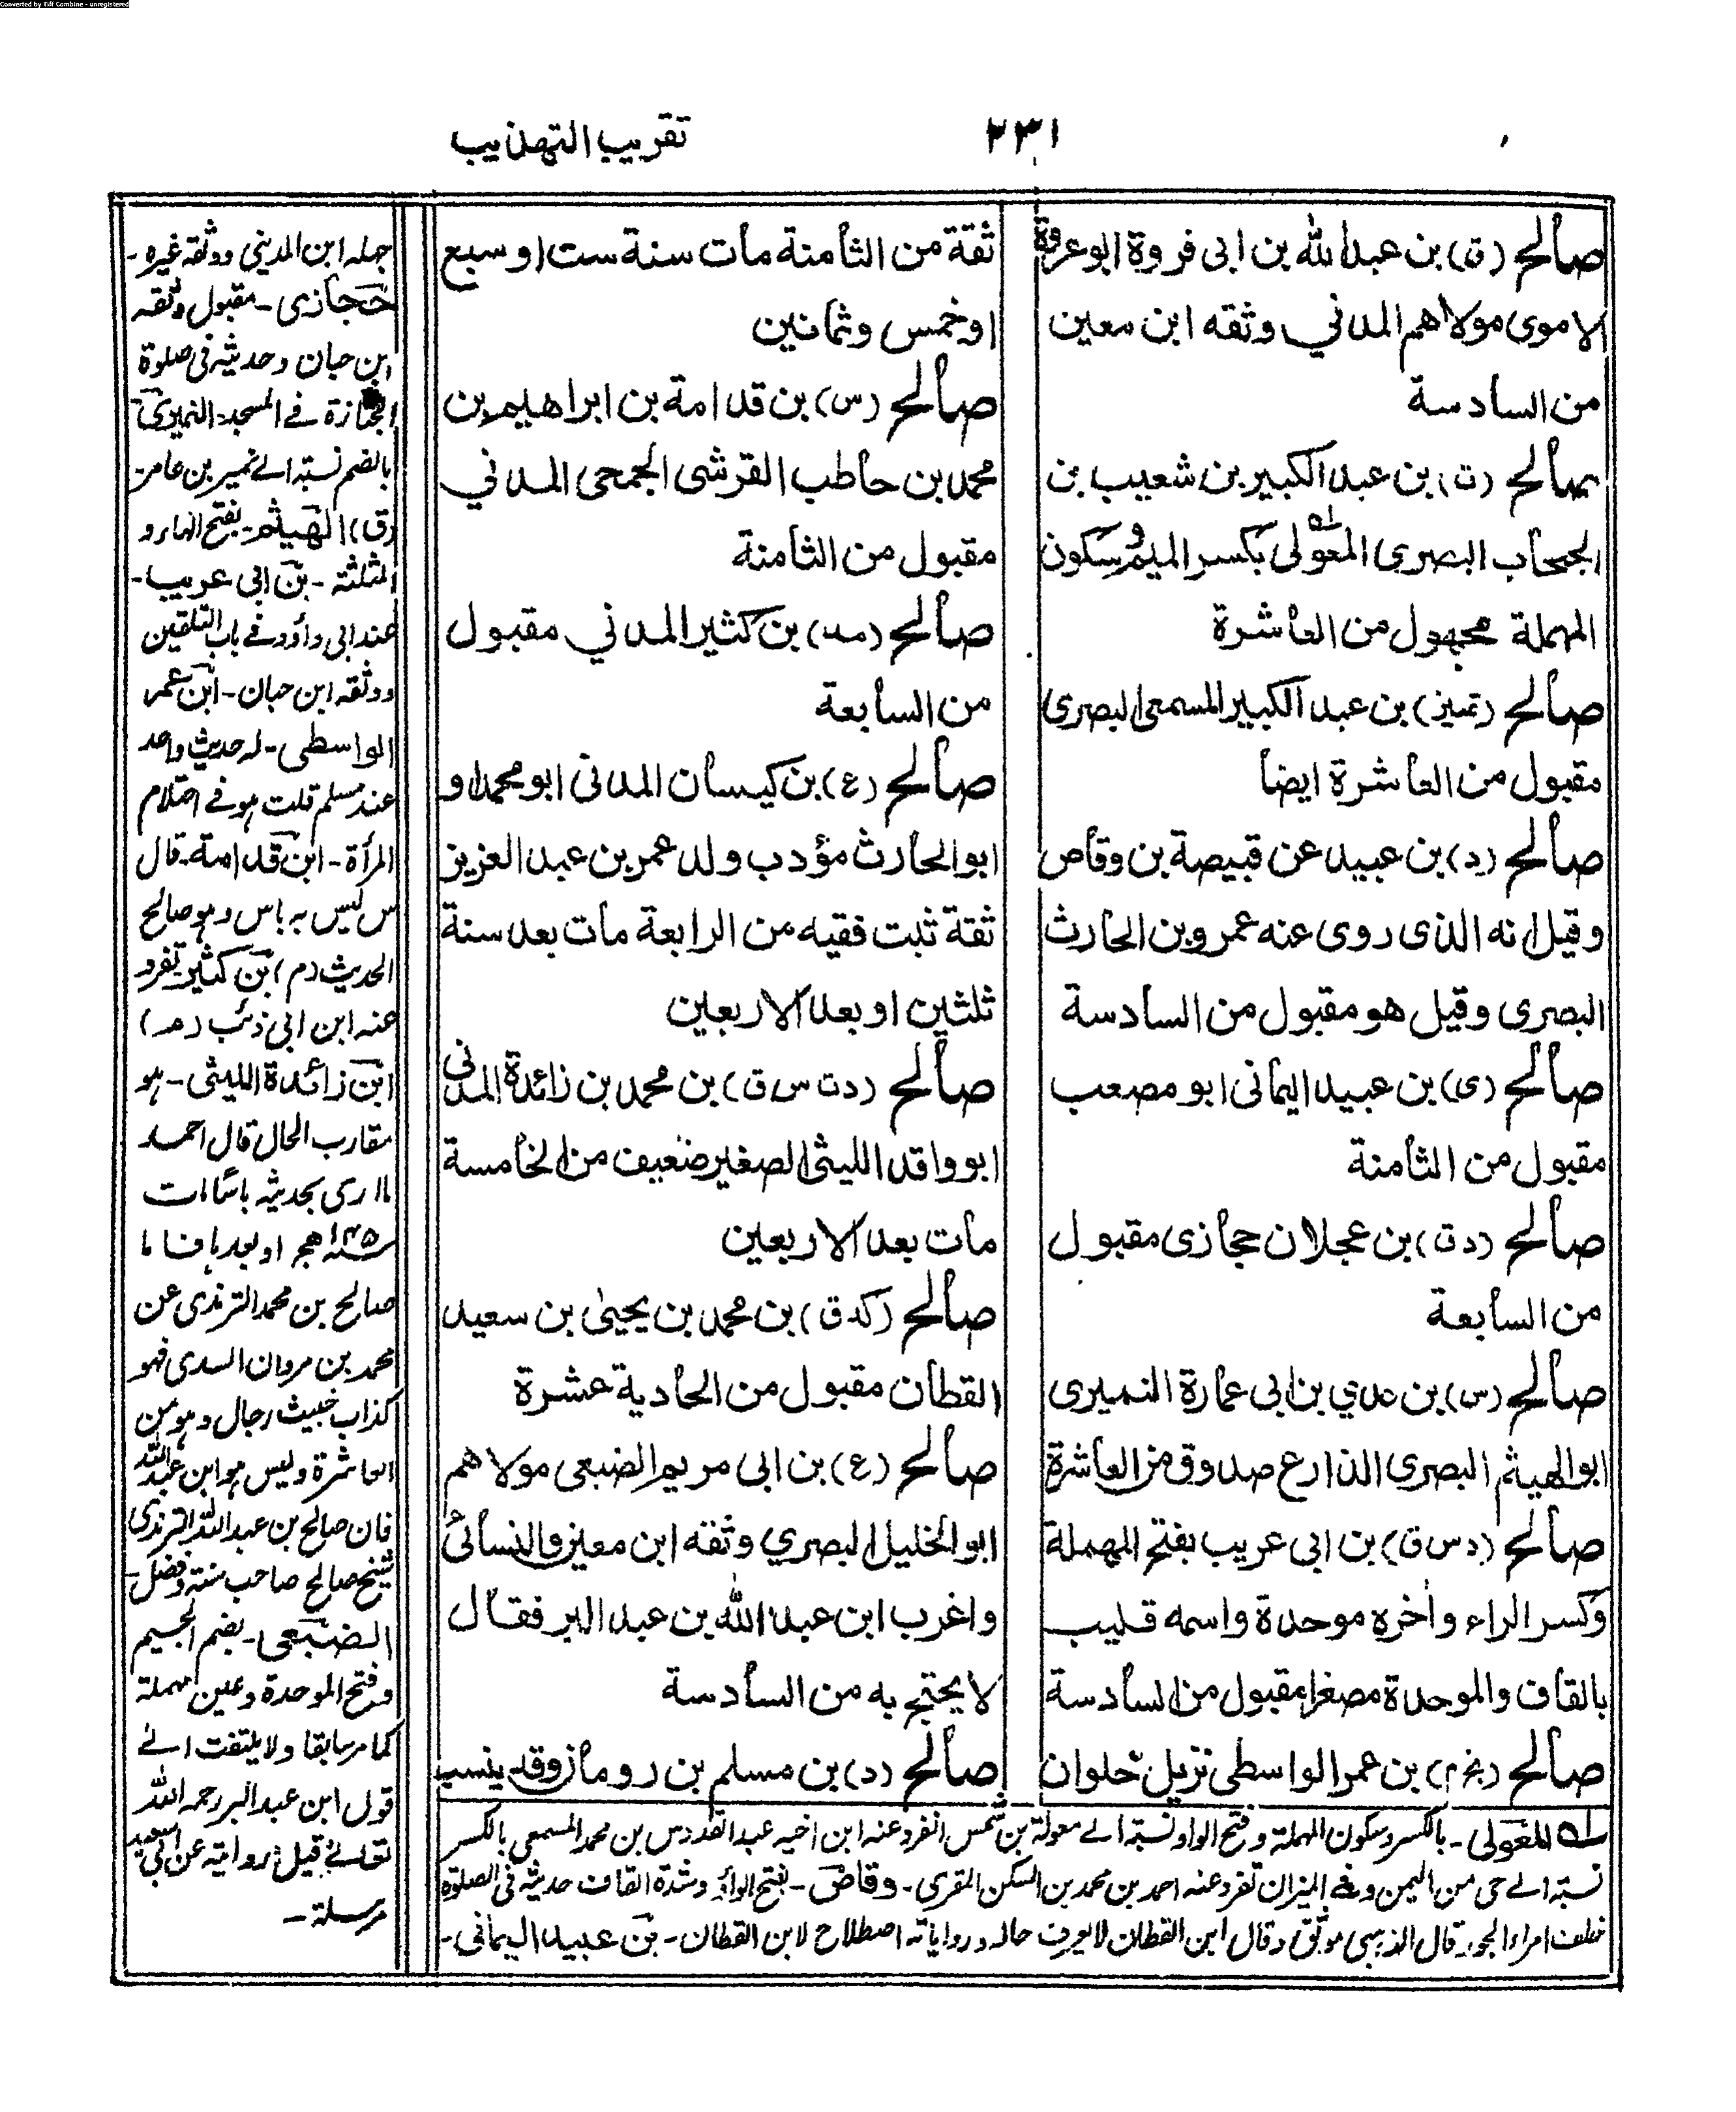 Converted by Tiff Combine - unregistered
٢٣١
تقريب التهذيب
صالح (ق) بن عبد الله بن ابى فروة ابو عروة
الاموى مولاهم المدني وثقه ابن معين
من السادسة
صالح (ت) بن عبد الكبير بن شعيب بن
الحبحاب البصرى المعولى بكسر الميم وسكون
المهملة مجهول من العاشرة
صالح (تميز) بن عبد الكبير المسمعى البصرى
مقبول من العاشرة ايضا
صالح (د) بن عبيد عن قبيصة بن وقاص
وقيل انه الذى روى عنه عمرو بن الحارث
البصرى وقيل هو مقبول من السادسة
صالح (ى) بن عبيد اليمانى ابو مصعب
مقبول من الثامنة
صالح (د ق) بن عجلان حجازى مقبول
من السابعة
صالح (س) بن عدي بن ابى عمارة النميرى
ابو الهيثم البصرى الذارع صدوق من العاشرة
صالح (د س ق) بن ابى عريب بفتح المهملة
وكسر الراء وأخره موحدة واسمه قليب
بالقاف والموحدة مصغرا مقبول من السادسة
صالح (بخ م) بن عمر الواسطى نزيل حلوان
ثقة من الثامنة مات سنة ست او سبع
او خمس وثمانين
صالح (س) بن قدامة بن ابراهيم بن
محمد بن حاطب القرشى الجمحى المدني
مقبول من الثامنة
صالح (مد) بن كثير المدني مقبول
من السابعة
صالح (ع) بن كيسان المدنى ابو محمد او
ابو الحارث مؤدب ولد عمر بن عبد العزيز
ثقة ثبت فقيه من الرابعة مات بعد سنة
ثلثين او بعد الاربعين
صالح (د ت س ق) بن محمد بن زائدة المدنى
ابو واقد الليثى الصغير ضعيف من الخامسة
مات بعد الاربعين
صالح (كد ق) بن محمد بن يحيىٰ بن سعيد
القطان مقبول من الحادية عشرة
صالح (ع) بن ابى مريم الضبعى مولاهم
ابو الخليل البصري وثقه ابن معين والنسائى
واغرب ابن عبد الله بن عبد البر فقال
لا يحتج به من السادسة
صالح (د) بن مسلم بن رومان وقد ينسب
له المعولى - بالكسر وسكون المهملة وفتح الواو نسبة الے معولة بن شمس انفرد عنه ابن اخيه عبد القدوس بن محمد المسمعي بالكسر
نسبة الے حى من اليمن وفے الميزان تفرد عنه احمد بن محمد بن السكن المقرى - وقاص - بفتح الواو وشدة القاف حديثه فى الصلوة
خلف امراء الجور قال الذهبى موثق وقال ابن القطان لا يعرف حاله ورواياته اصطلاح لابن القطان - بن عبيد اليمانى -
جهله ابن المدينى ووثقه غيره -
حجازى - مقبول وثقه
ابن حبان وحديثه فى صلوة
الجنازة فے المسجد - النميرى
بالضم نسبة الے نمير بن عامر -
(ق) الهيثم - بفتح الهاء و
المثلثة - بن ابى عريب -
عند ابى داؤد فے باب التلقين
ووثقه ابن حبان - ابن عمر
الواسطى - له حديث واحد
عند مسلم قلت هو فے احتلام
المرأة - ابن قدامة - قال
س ليس به باس وهو صالح
الحديث (م) بن كثير تفرد
عنه ابن ابى ذئب (مد)
ابن زائدة الليثى - هو
مقارب الحال قال احمد
ما ارى بحديثه باسا مات
١٤٥ سنة هجر او بعدها فاما
صالح بن محمد الترمذى عن
محمد بن مروان السدى فهو
كذاب خبيث رجال وهو من
العاشرة وليس هو ابن عبد الله
فان صالح بن عبد الله الترمذى
شيخ صالح صاحب سنة وفضل -
الضبعى - بضم الجيم
وفتح الموحدة وعين مهملة
كما مر سابقا ولا يلتفت الے
قول ابن عبد البر رحمه الله
تعالے قيل روايته عن ابى سعيد
مرسلة -